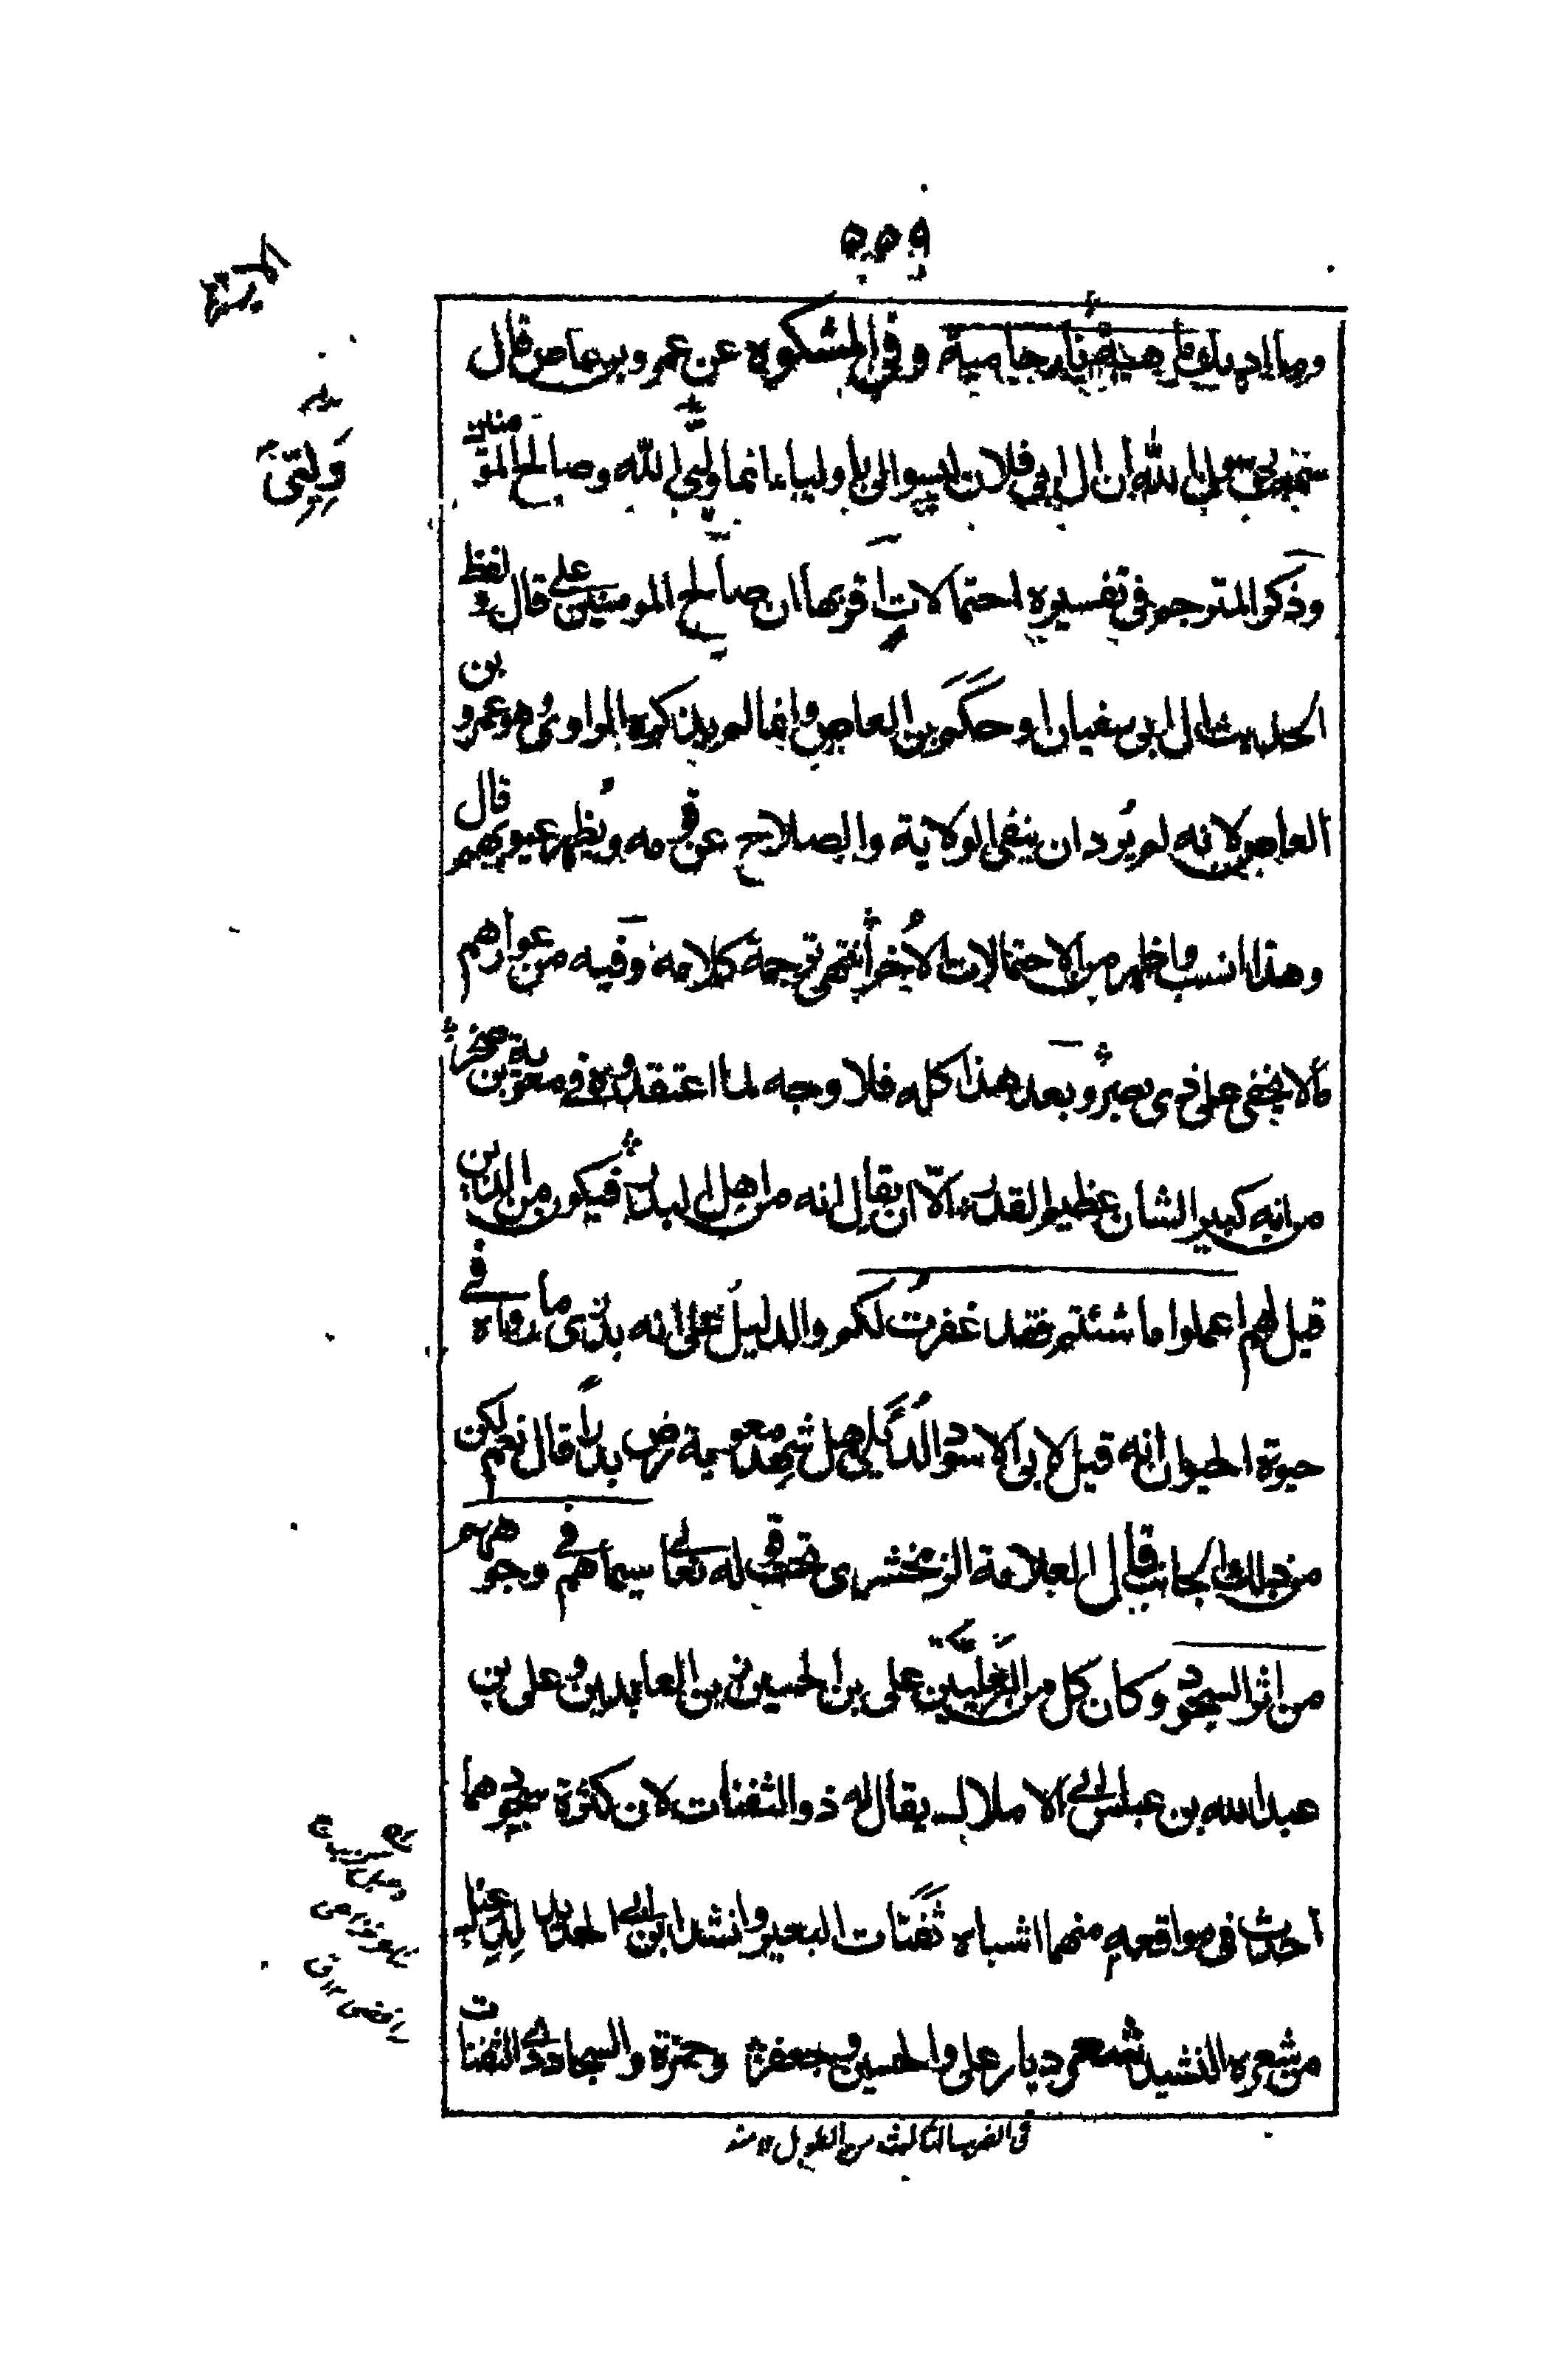 ٥٥٩
وما ادريك ما هيه نار حامية وفي المشكوة عن عمرو بن عاص قال
سمعت رسول الله ان ال ابي فلان ليسوا لي باولياء انما وليي الله وصالح المؤمنين
وذكر المترجم في تفسيره احتمالات اقربها ان صالح المومنين علي قال لفظ
الحديث ال ابي سفيان او حكم بن العاص وانما لم يذكره الراوي وهو عمرو بن
العاص لانه لم يرد ان ينفي الولاية والصلاح عن قومه ويظهر عيوبهم قال
وهذا انسب واظهر من الاحتمالات الاخر انتهى ترجمة كلامه وفيه من عوارهم
مالا يخفى على ذي بصر وبعد هذا كله فلا وجه لما اعتقدوه في معوية بن صخر
من انه كبير الشان عظيم القدر الّا ان يقال انه من اهل البدر فيكون من الذين
قيل لهم اعملوا ما شئتم فقد غفرت لكم والدليل على انه بدري ما رواه في
حيوة الحيوان انه قيل لابي الاسود الدئلي هل شهد معوية رض بدرا قال نعم لكن
من ذلك الجانب قال العلامة الزمخشري تحت قوله تعالى سيماهم في وجوههم
من اثر السجود وكان كل من العليين علي بن الحسين زين العابدين وعلي بن
عبد الله بن عباس ابي الاملاك يقال له ذو الثفنات لان كثرة سجودهما
احدثت في مواقعه منهما اشباه ثفنات البعير وانشد ابن ابي الحديد لدعبل
من شعره النشيد شعر ديار علي والحسين وجعفر وحمزة والسجاد ذي الثفنات
في الضرب الثالث من الطويل ١٢ منه
وليّي